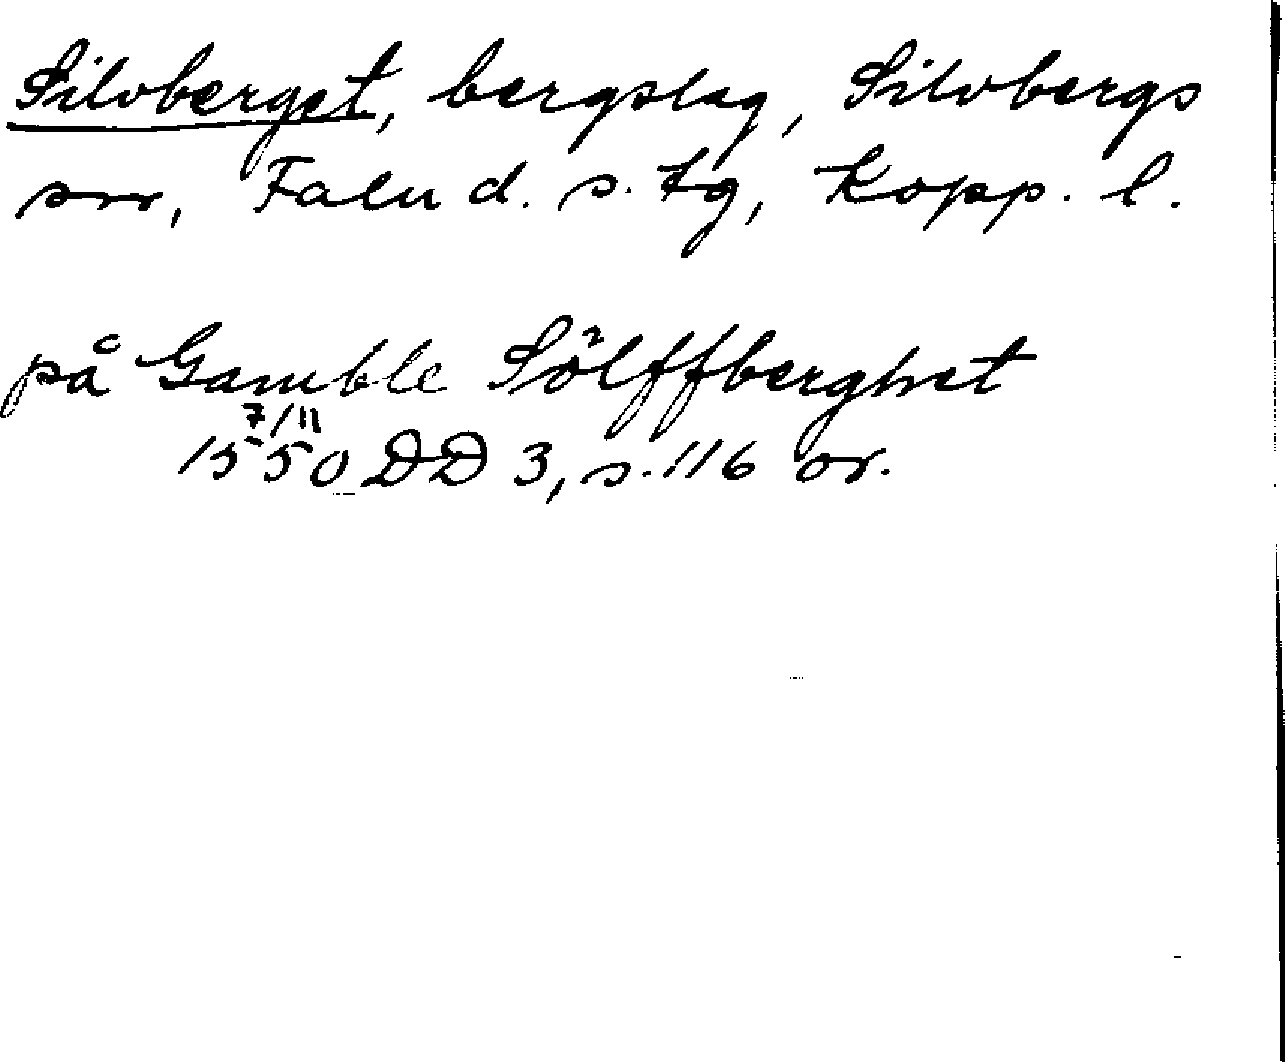 Silvberget, bergslag, Silvbergs
snr, Falu d. s. tg, Kopp. l.
på Gamble Sölffberghet
7/11
1550 DD 3, s. 116 or.